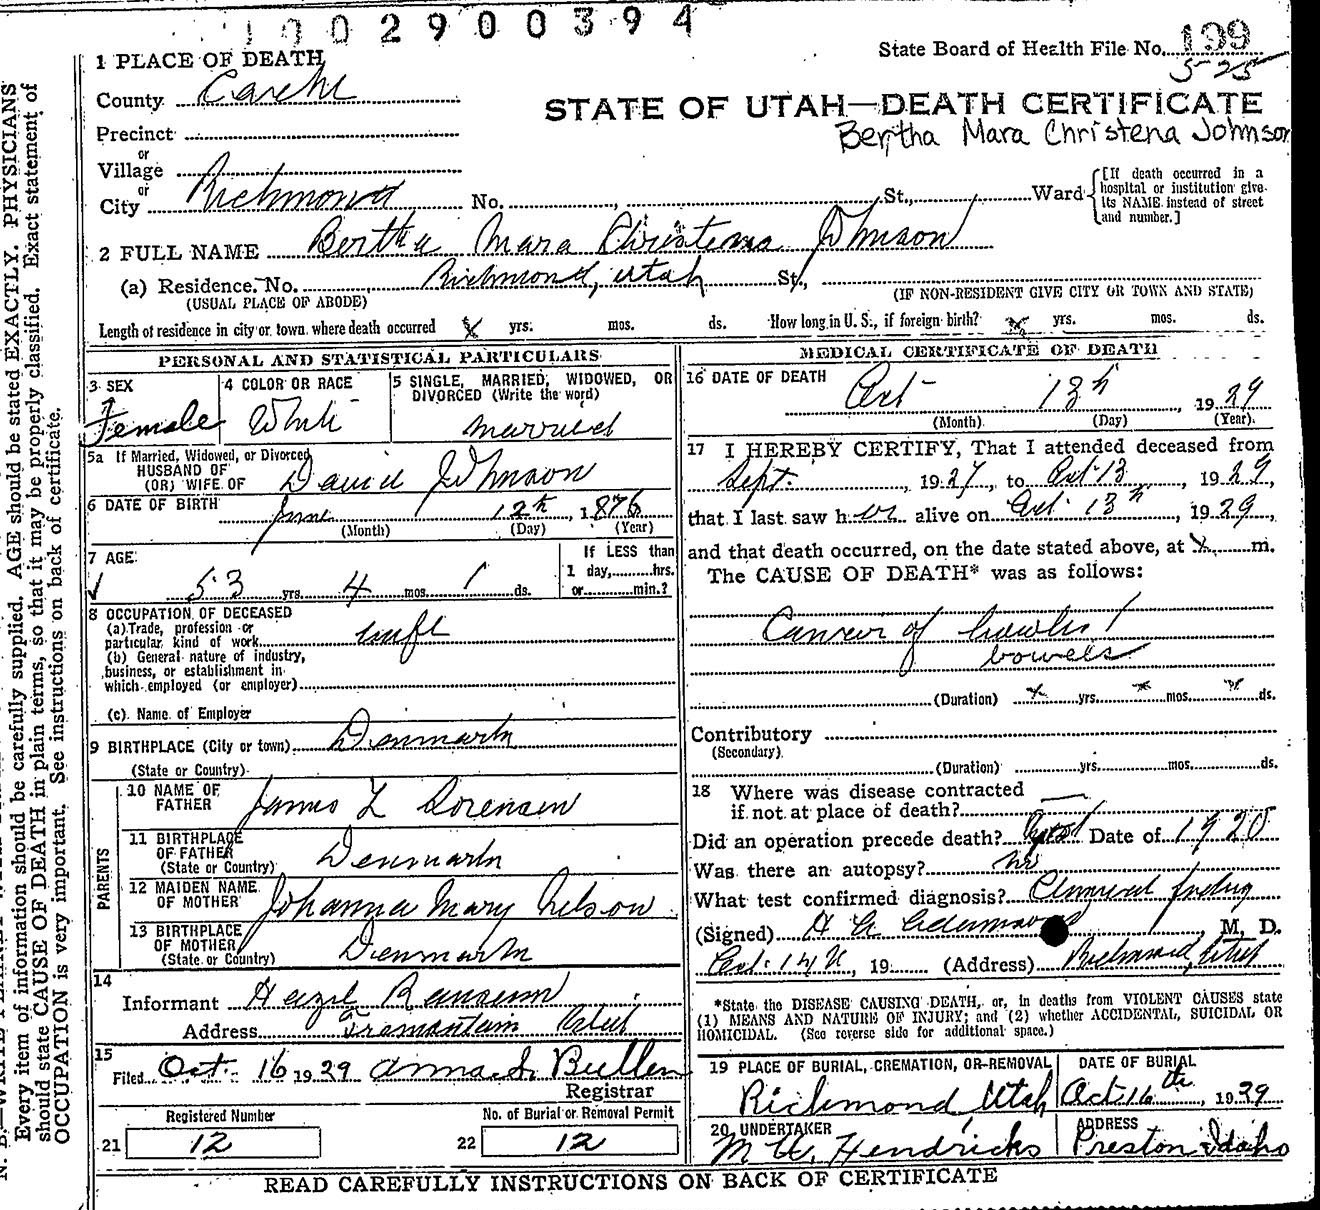 1002900394
State Board of Health File No. 199
5-25
1 PLACE OF DEATH
County Cache
STATE OF UTAH—DEATH CERTIFICATE
Bertha Mara Christena Johnson
Precinct
or
Village
or
City Richmond No. St., Ward
[If death occurred in a hospital or institution give its NAME instead of street and number.]
2 FULL NAME Bertha Mara Christena Johnson
(a) Residence. No. Richmond, Utah St.,
(USUAL PLACE OF ABODE) (IF NON-RESIDENT GIVE CITY OR TOWN AND STATE)
Length of residence in city or town where death occurred x yrs. mos. ds. How long in U. S., if foreign birth? x yrs. mos. ds.
PERSONAL AND STATISTICAL PARTICULARS
3 SEX
Female
4 COLOR OR RACE
White
5 SINGLE, MARRIED, WIDOWED, OR DIVORCED (Write the word)
Married
5a If Married, Widowed, or Divorced
HUSBAND OF
(OR) WIFE OF David Johnson
6 DATE OF BIRTH June 12th, 1876
(Month) (Day) (Year)
7 AGE
53 yrs. 4 mos. 1 ds.
If LESS than
1 day, hrs.
or min.?
8 OCCUPATION OF DECEASED
(a) Trade, profession or
particular kind of work wife
(b) General nature of industry,
business, or establishment in
which employed (or employer)
(c) Name of Employer
9 BIRTHPLACE (City or town) Denmark
(State or Country)
PARENTS
10 NAME OF
FATHER James L Sorensen
11 BIRTHPLACE
OF FATHER
(State or Country) Denmark
12 MAIDEN NAME
OF MOTHER Johanna Mary Nelson
13 BIRTHPLACE
OF MOTHER
(State or Country) Denmark
14
Informant Hazel Ransom
Address Tremonton Utah
15
Filed Oct. 16 1929 Anna S. Bullen
Registrar
Registered Number
21 12
No. of Burial or Removal Permit
22 12
MEDICAL CERTIFICATE OF DEATH
16 DATE OF DEATH
Oct 13th, 1929
(Month) (Day) (Year)
17 I HEREBY CERTIFY, That I attended deceased from
Sept., 1927, to Oct 13, 1929,
that I last saw her alive on Oct. 13th, 1929,
and that death occurred, on the date stated above, at x m.
The CAUSE OF DEATH* was as follows:
Cancer of bowels
bowels
(Duration) x yrs. x mos. x ds.
Contributory
(Secondary)
(Duration) yrs. mos. ds.
18 Where was disease contracted
if not at place of death?
Did an operation precede death? Date of 1920
Was there an autopsy? no
What test confirmed diagnosis? Clinical finding
(Signed) M. D.
Oct. 14th, 19 (Address) Richmond, Utah
*State the DISEASE CAUSING DEATH, or, in deaths from VIOLENT CAUSES state
(1) MEANS AND NATURE OF INJURY; and (2) whether ACCIDENTAL, SUICIDAL OR
HOMICIDAL. (See reverse side for additional space.)
19 PLACE OF BURIAL, CREMATION, OR REMOVAL
Richmond, Utah
DATE OF BURIAL
Oct. 16th, 1929
20 UNDERTAKER
M W. Hendricks
ADDRESS
Preston Idaho
READ CAREFULLY INSTRUCTIONS ON BACK OF CERTIFICATE
Every item of information should be carefully supplied. AGE should be stated EXACTLY. PHYSICIANS
should state CAUSE OF DEATH in plain terms, so that it may be properly classified. Exact statement of
OCCUPATION is very important. See instructions on back of certificate.